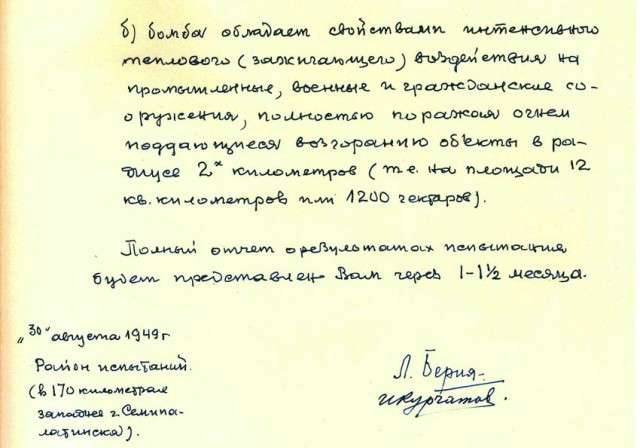 б) бомба обладает свойствами интенсивного
теплового (зажигающего) воздействия на
промышленные, военные и гражданские со-
оружения, полностью поражая огнем
поддающиеся возгоранию объекты в ра-
диусе 2х километров (т.е. на площади 12
кв. километров или 1200 гектаров).
Полный отчет о результатах испытания
будет представлен Вам через 1-1½ месяца.
"30" августа 1949 г
Район испытаний.
(в 170 километрах
западнее г. Семипа-
латинска).
Л. Берия.
И Курчатов.